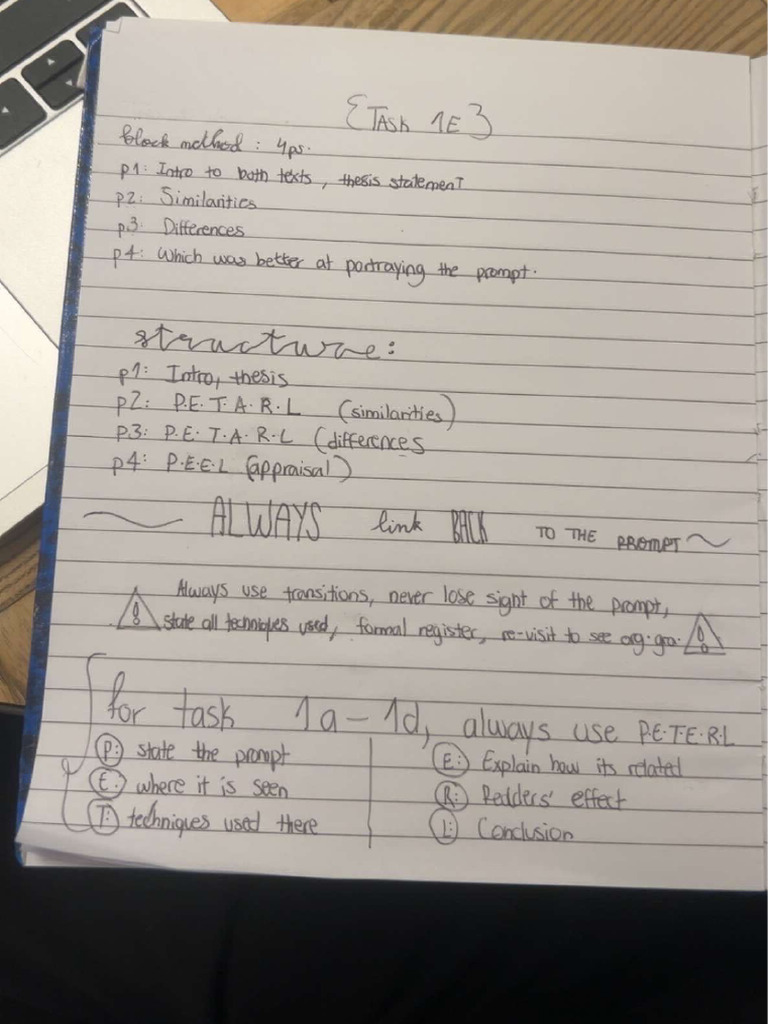 {TASK 1E}
block method : 4ps.
p1: Intro to both texts, thesis statement
p2: Similarities
p3: Differences
p4: Which was better at portraying the prompt.
structure:
p1: Intro, thesis
p2: P.E.T.A.R.L (similarities)
p3: P.E.T.A.R.L (differences
p4: P.E.E.L (appraisal)
~ ALWAYS link BACK TO THE PROMPT ~
Always use transitions, never lose sight of the prompt,
state all techniques used, formal register, re-visit to see org.gra.
for task 1a-1d, always use P.E.T.E.R.L
P: state the prompt
E: where it is seen
T: techniques used there
E: Explain how its related
R: Readers' effect
L: Conclusion